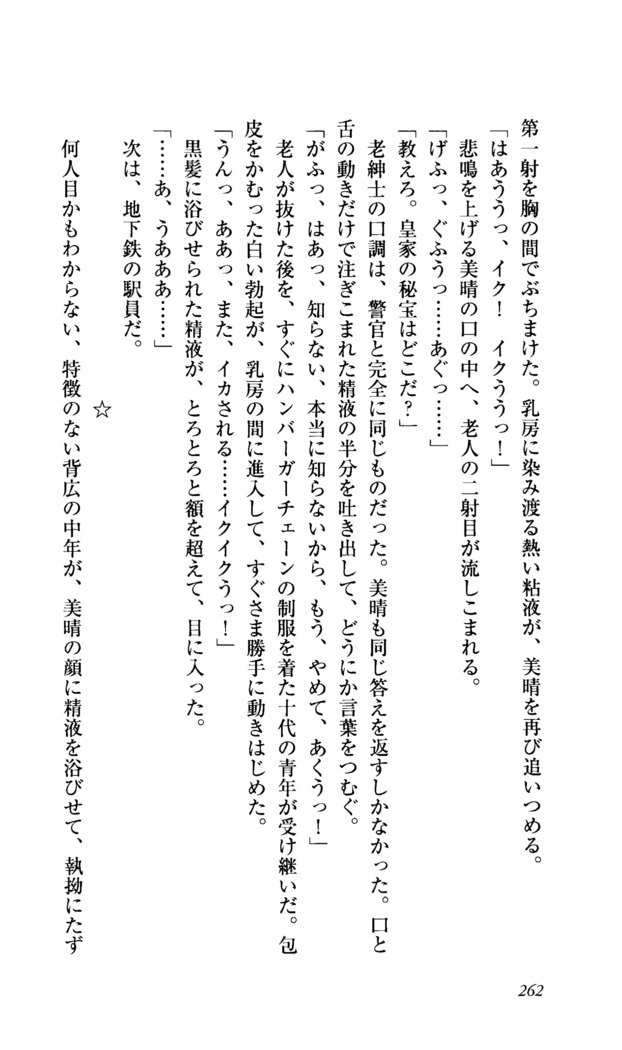 第一射を胸の間でぶちまけた。乳房に染み渡る熱い粘液が、美晴を再び追いつめる。
「はあううっ、イク！　イクううっ！」
悲鳴を上げる美晴の口の中へ、老人の二射目が流しこまれる。
「げふっ、ぐふうっ……あぐっ……」
「教えろ。皇家の秘宝はどこだ？」
老紳士の口調は、警官と完全に同じものだった。美晴も同じ答えを返すしかなかった。口と
舌の動きだけで注ぎこまれた精液の半分を吐き出して、どうにか言葉をつむぐ。
「がふっ、はあっ、知らない、本当に知らないから、もう、やめて、あくうっ！」
老人が抜けた後を、すぐにハンバーガーチェーンの制服を着た十代の青年が受け継いだ。包
皮をかむった白い勃起が、乳房の間に進入して、すぐさま勝手に動きはじめた。
「うんっ、ああっ、また、イカされる……イクイクうっ！」
黒髪に浴びせられた精液が、とろとろと額を超えて、目に入った。
「……あ、うあああ……」
次は、地下鉄の駅員だ。
☆
何人目かもわからない、特徴のない背広の中年が、美晴の顔に精液を浴びせて、執拗にたず
262